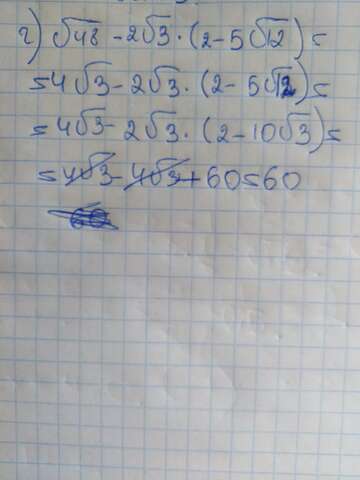 г) √48 - 2√3 · (2 - 5√12) =
= 4√3 - 2√3 · (2 - 5√12) =
= 4√3 - 2√3 · (2 - 10√3) =
= 4√3 - 4√3 + 60 = 60